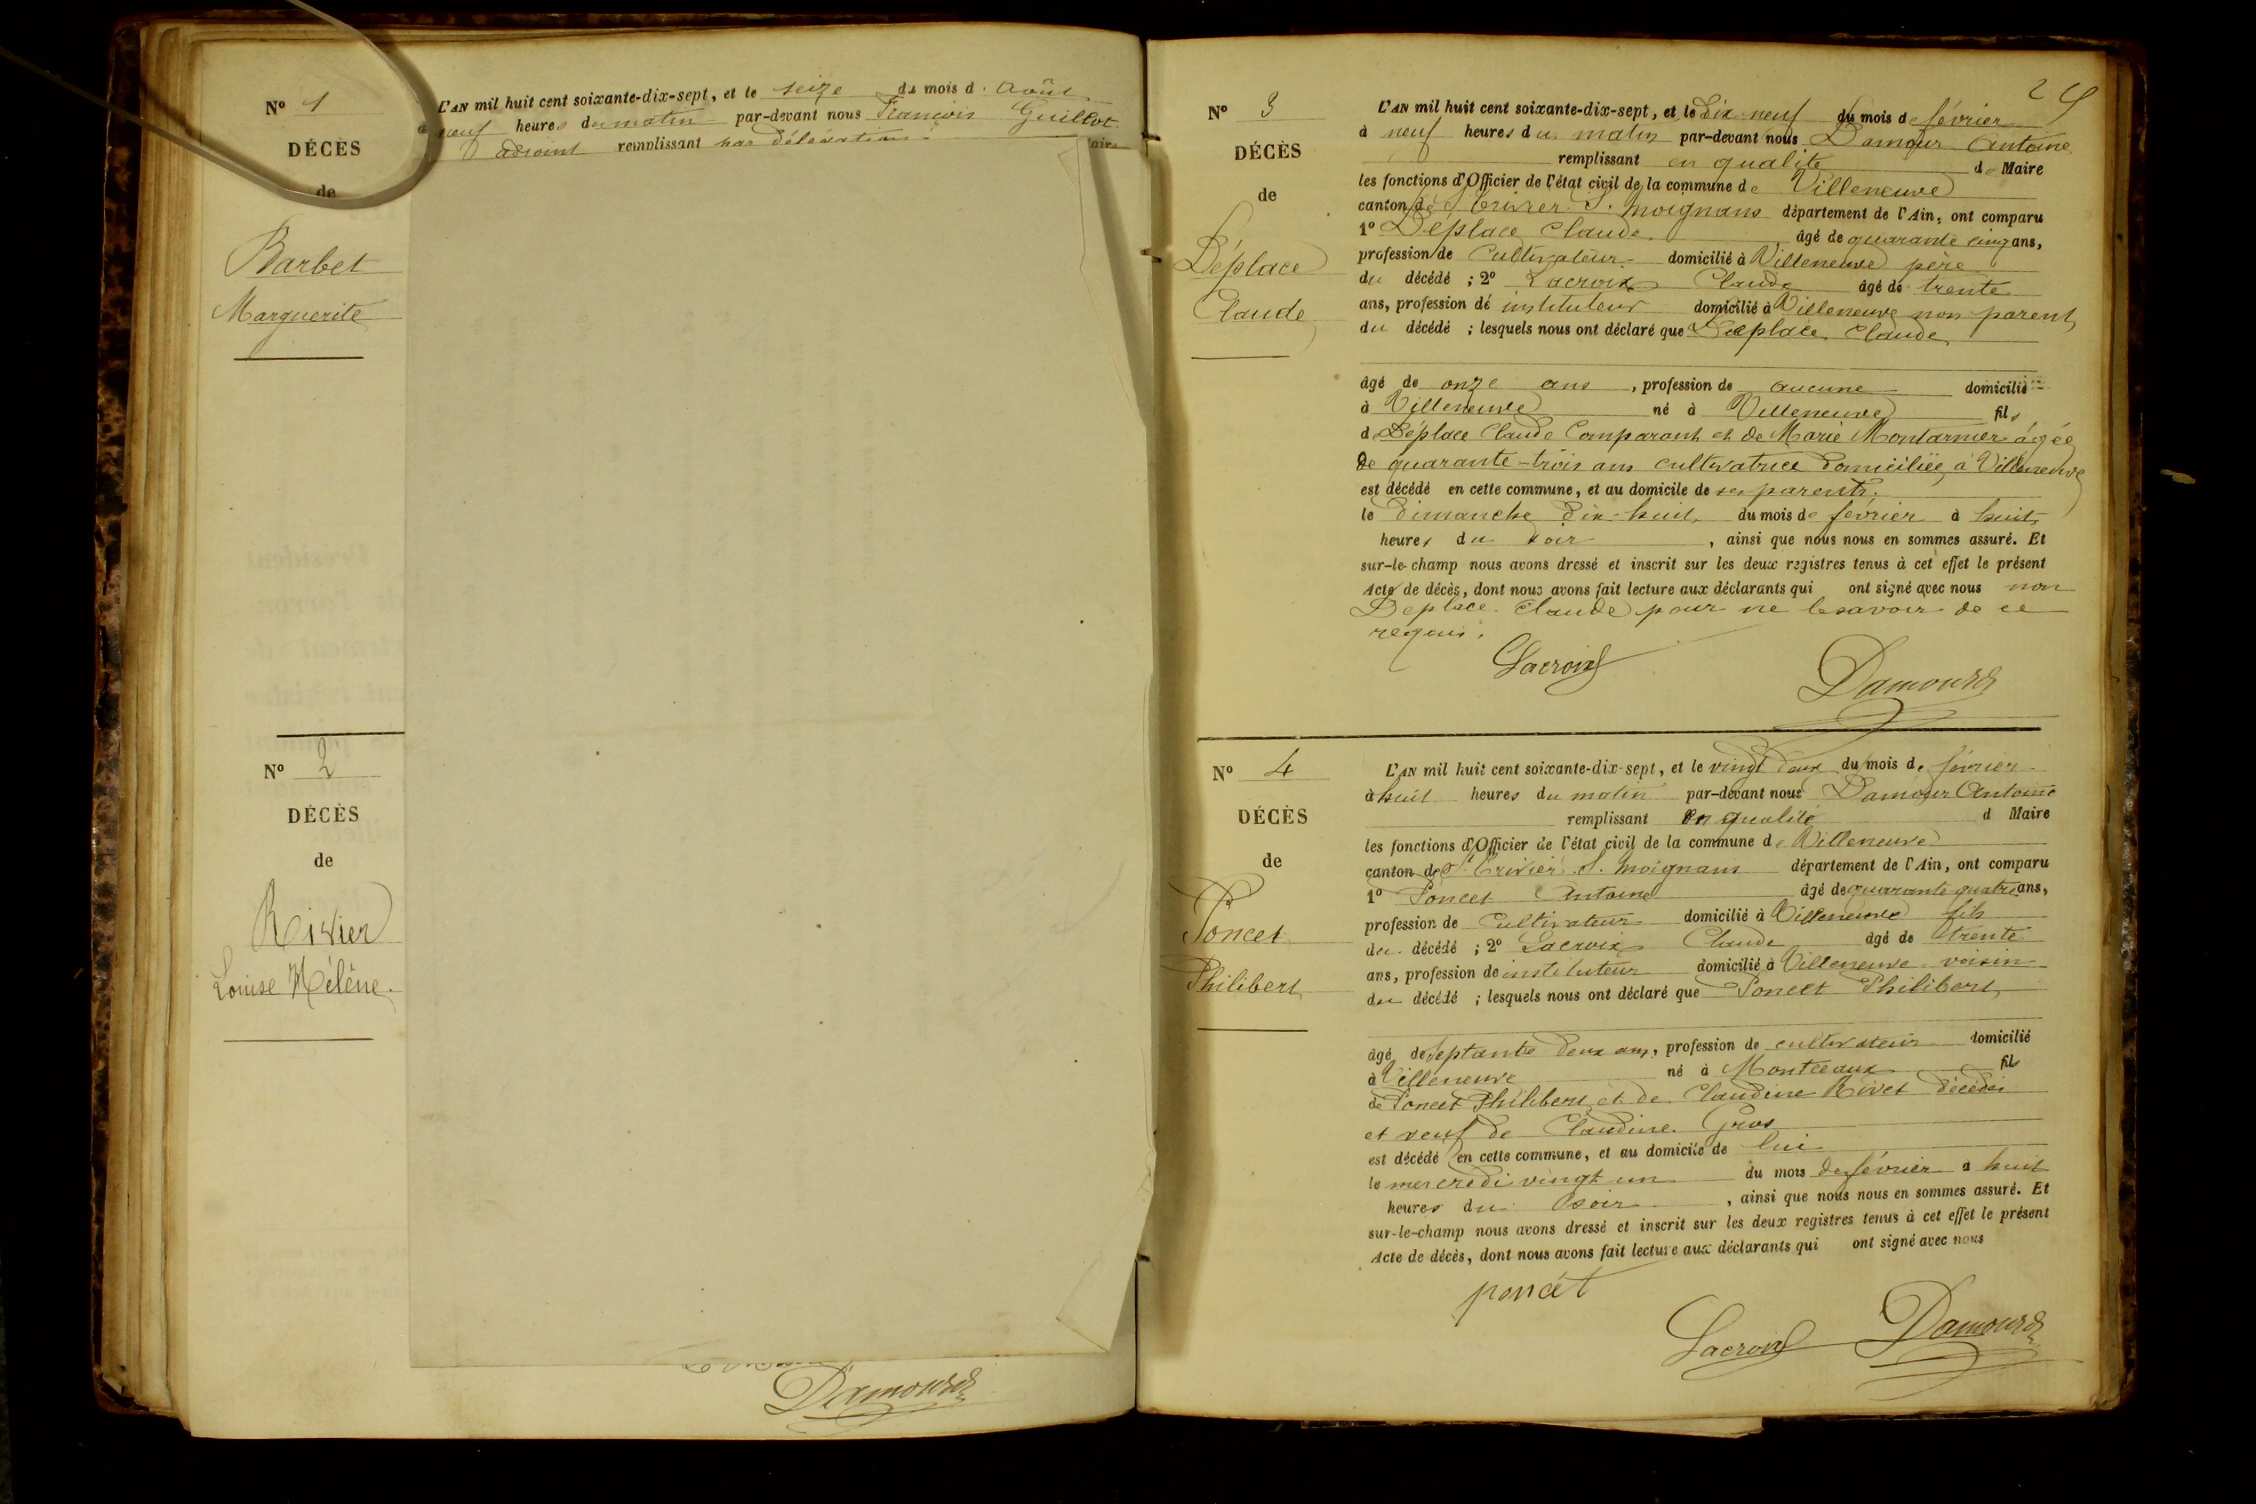 Nº 1
DÉCÈS
de
Barbet
Marguerite
L'AN mil huit cent soixante-dix-sept, et le seize du mois d. Août
neuf heures du matin par-devant nous François Guillot
adjoint remplissant par délégation
Nº 2
DÉCÈS
de
Rivier
Louise Hélène.
Damour
2
Nº 3
DÉCÈS
de
Déplace
Claude
L'AN mil huit cent soixante-dix-sept, et le Dix neuf du mois de février
à neuf heures du matin par-devant nous Damour Antoine
remplissant en qualité de Maire
les fonctions d'Officier de l'état civil de la commune de Villeneuve
canton de St Trivier S. Moignans département de l'Ain, ont comparu
1º Déplace Claude âgé de quarante cinq ans,
profession de Cultivateur domicilié à Villeneuve père
du décédé ; 2º Lacroix Claude âgé de trente
ans, profession de instituteur domicilié à Villeneuve non parent
du décédé ; lesquels nous ont déclaré que Déplace Claude
âgé de onze ans , profession de aucune domicilié
à Villeneuve né à Villeneuve fils
de Déplace Claude Comparant et de Marie Montarnier âgée
de quarante-trois ans cultivatrice domiciliée à Villeneuve
est décédé en cette commune, et au domicile de ses parents.
le dimanche dix-huit du mois de février à huit
heures du soir , ainsi que nous nous en sommes assuré. Et
sur-le-champ nous avons dressé et inscrit sur les deux registres tenus à cet effet le présent
Acte de décès, dont nous avons fait lecture aux déclarants qui ont signé avec nous non
Deplace Claude pour ne le savoir de ce
requis.
Lacroix
Damour
Nº 4
DÉCÈS
de
Poncet
Philibert
L'AN mil huit cent soixante-dix-sept, et le vingt deux du mois de février
à huit heures du matin par-devant nous Damour Antoine
remplissant en qualité d Maire
les fonctions d'Officier de l'état civil de la commune de Villeneuve
canton de St Trivier S. Moignans département de l'Ain, ont comparu
1º Poncet Antoine âgé de quarante quatre ans,
profession de Cultivateur domicilié à Villeneuve fils
du décédé ; 2º Lacroix Claude âgé de trente
ans, profession de instituteur domicilié à Villeneuve voisin
du décédé ; lesquels nous ont déclaré que Poncet Philibert
âgé de septante deux ans, profession de cultivateur domicilié
à Villeneuve né à Montceaux fils
de Poncet Philibert et de Claudine Rivet décédés
et veuf de Claudine Gros
est décédé en cette commune, et au domicile de lui
le mercredi vingt un du mois de février à huit
heures du soir , ainsi que nous nous en sommes assuré. Et
sur-le-champ nous avons dressé et inscrit sur les deux registres tenus à cet effet le présent
Acte de décès, dont nous avons fait lecture aux déclarants qui ont signé avec nous
poncet
Lacroix Damour